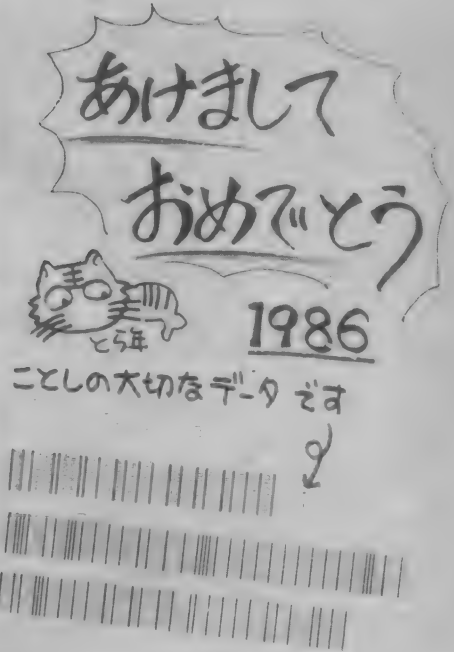 あけまして
おめでとう
とら年
1986
ことしの大切なデータです